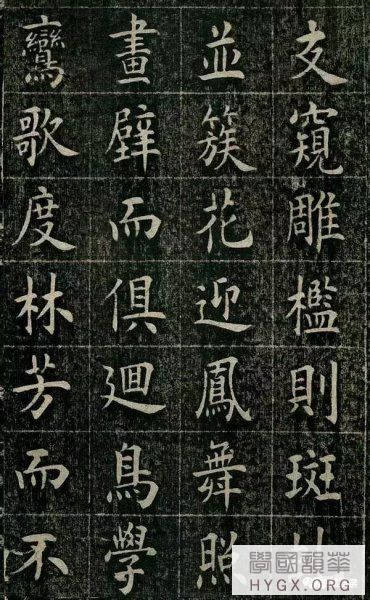 友窺雕檻則斑
並簇花迎鳳舞照
畫壁而俱廻鳥學
鸞歌度林芳而不
華韻國學
HYGX.ORG